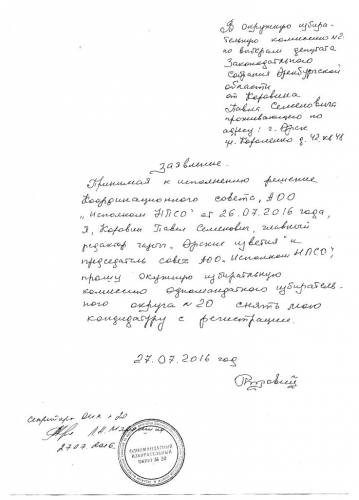 В окружную избира-
тельную комиссию №20
по выборам депутата
Законодательного
Собрания Оренбургской
области
от Коровина
Павла Семеновича
проживающего по
адресу: г. Орск
ул. Короленко д. 42. кв 48
Заявление.
Принимая к исполнению решение
Координационного совета, ООО
„Исполком НПСО“ от 26.07.2016 года,
Я, Коровин Павел Семенович, главный
редактор газеты „Орские известия“ и
председатель совета ООО. Исполком НПСО“,
прошу Окружную избирательную
комиссию одномандатного избиратель-
ного округа №20 снять мою
кандидатуру с регистрации.
27.07.2016 год
Секретарь
27.07.2016
ОДНОМАНДАТНЫЙ
ИЗБИРАТЕЛЬНЫЙ
ОКРУГ № 20